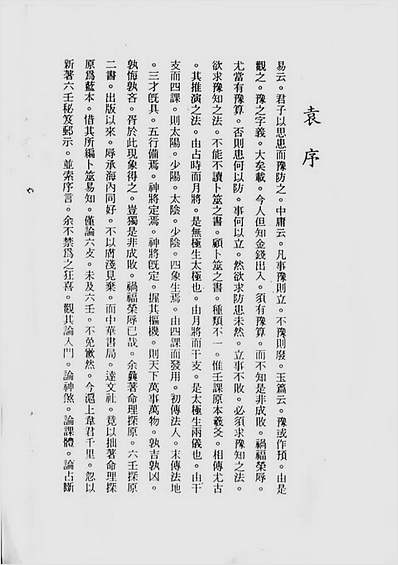 袁序
易云。君子以思患而豫防之。中庸云。凡事豫則立。不豫則廢。玉篇云。豫或作預。由是
觀之。豫之字義。大矣哉。今人但知金錢出入。須有豫算。而不知是非成敗。禍福榮辱。
尤當有豫算。否則患何以防。事何以立。然欲求防患未然。立事不敗。必須求豫知之法。
欲求豫知之法。不能不讀卜筮之書。顧卜筮之書。種類不一。惟壬課原本羲爻。相傳尤古
。其推演之法。由占時而月將。是無極生太極也。由月將而干支。是太極生兩儀也。由干
支而四課。則太陽。少陽。太陰。少陰。四象生焉。由四課而發用。初傳法人。末傳法地
。三才既具。五行備焉。神將定焉。神將既定。握其樞機。則天下萬事萬物。孰吉孰凶。
孰悔孰吝。胥於此現象得之。豈獨是非成敗。禍福榮辱已哉。余曩著命理探原。六壬探原
二書。出版以來。辱承海內同好。不以膚淺見棄。而中華書局。達文社。竟以拙著命理探
原爲藍本。借其所編卜筮易知。僅論六爻。未及六壬。不免歉然。今滬上韋君千里。忽以
新著六壬秘笈郵示。並索序言。余不禁爲之狂喜。觀其論入門。論神煞。論課體。論占斷